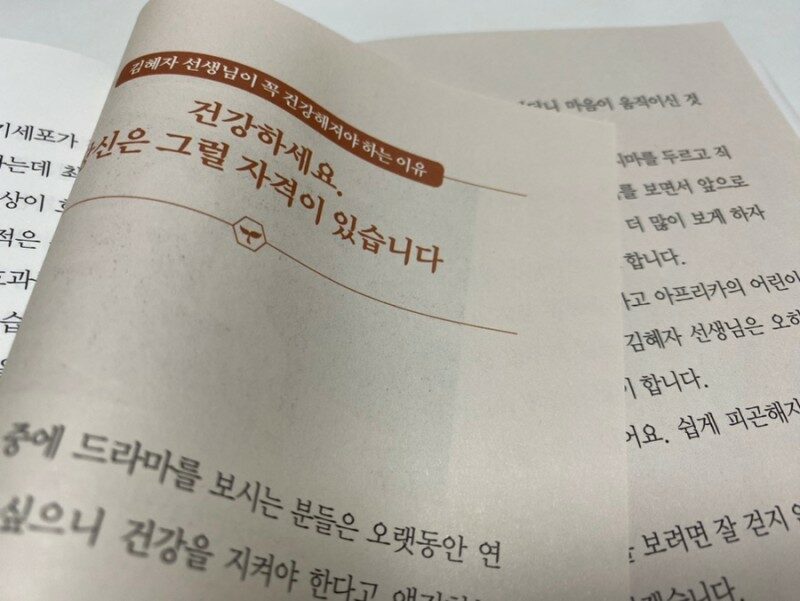 김혜자 선생님이 꼭 건강해져야 하는 이유
건강하세요.
당신은 그럴 자격이 있습니다
중에 드라마를 보시는 분들은 오랫동안 연
싶으니 건강을 지켜야 한다고
기세포가
하는데 최
상이
적은
과
습
마음이 움직이신 것
치마를 두르고 직
를 보면서 앞으로
더 많이 보게 하자
합니다.
하고 아프리카의 어린이
김혜자 선생님은 오히
이 합니다.
어요. 쉽게 피곤해지
를 보려면 잘 걷지 않
겠습니다.